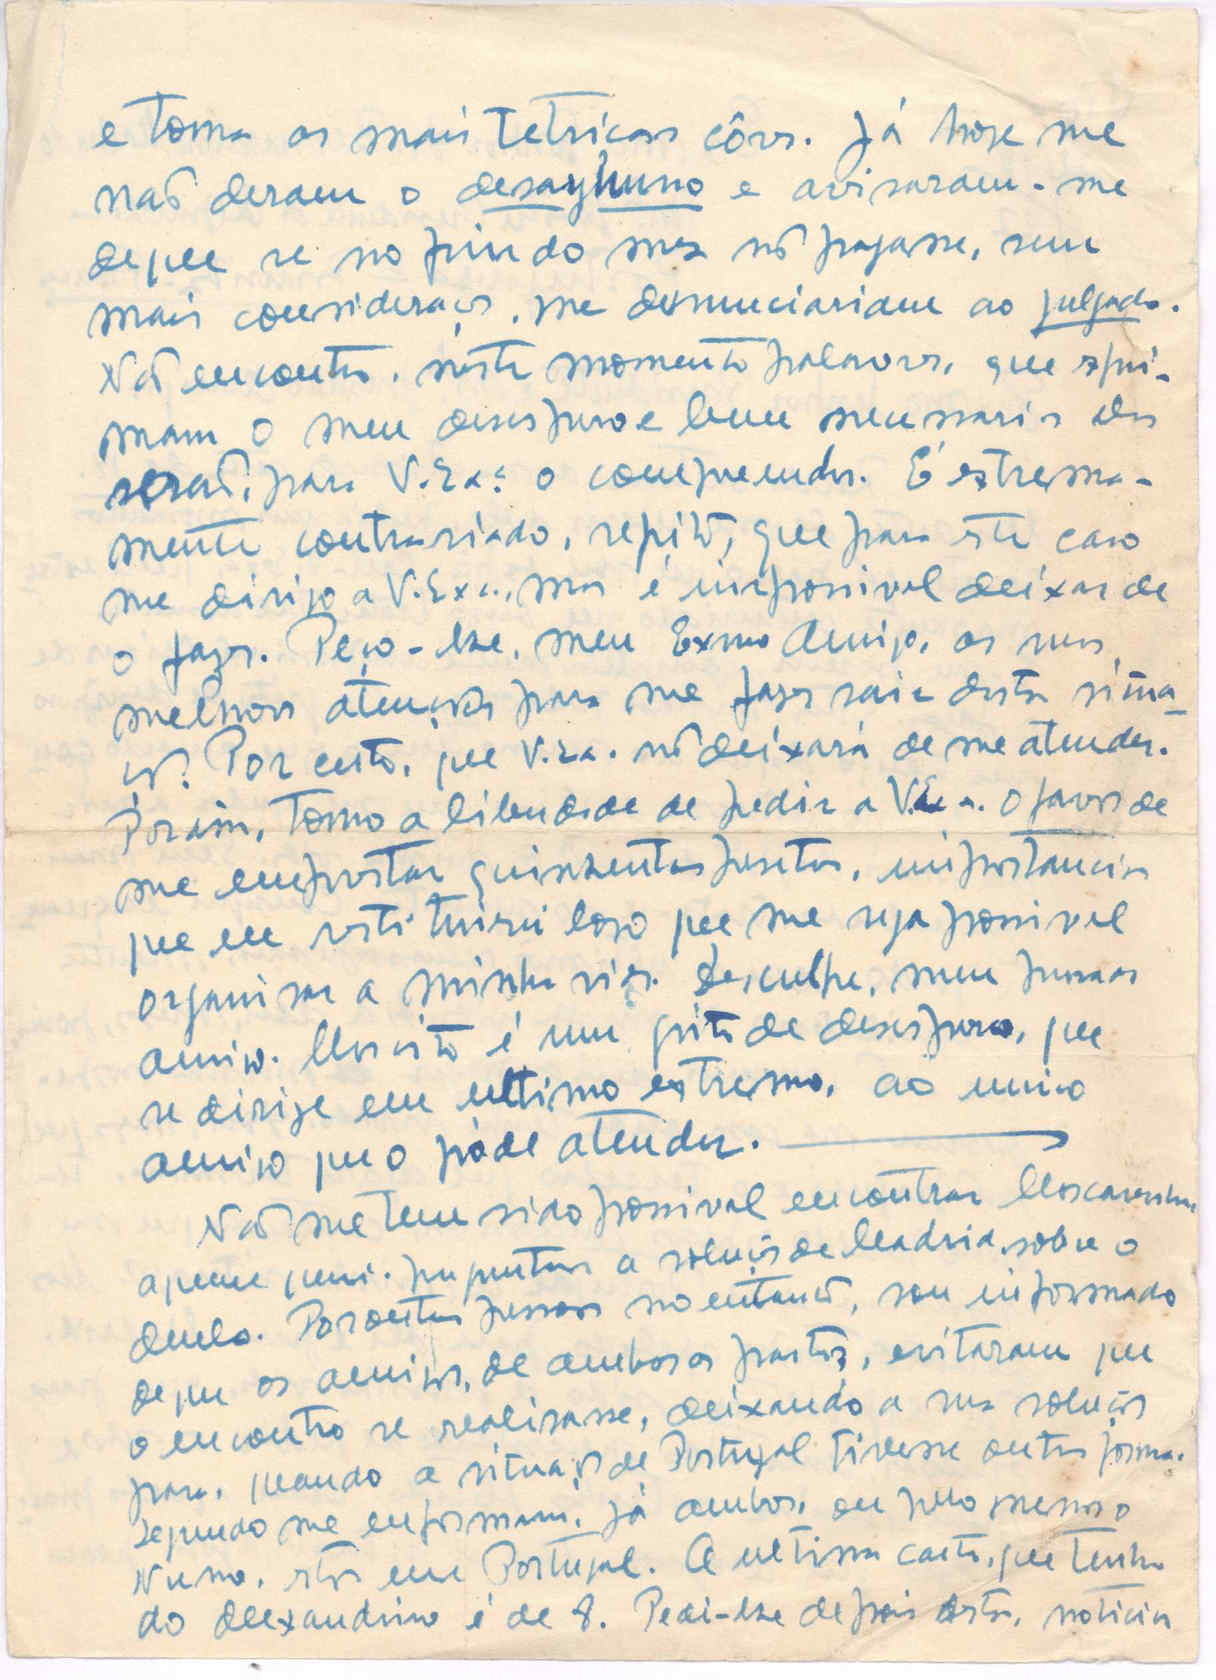 e toma as mais tetricas côres. Já hoje me
não deram o desayhuno e avisaram-me
de que se no fim do mez nõ pagasse, sem
mais considerações, me denunciariam ao julgado.
Não encontro, neste momento palavras, que expri-
mam o meu desespero e bem necessarias elas
serão, para V. Exa. o compreender. É extrema-
mente contrariado, repito, que para este caso
me dirijo a V. Exa., mas é impossivel deixar de
o fazer. Peço-lhe, meu Exmo Amigo, as suas
melhores atenções para me fazer sair desta situa-
ção? Por certo, que V. Exa. nõ deixará de me atender.
Porisso, tomo a liberdade de pedir a V. Exa. o favor de
me emprestar quinhentas pesetas, importancia
que eu restituirei logo que me seja possivel
organisar a minha vida. Desculpe, meu
amigo. Mas isto é um grito de desespero, que
se dirige em ultimo extremo, ao unico
amigo que o póde atender.
Não me tem sido possivel encontrar Mascarenhas
a quem quiz perguntar a solução de Madrid, sobre o
duelo. Por outras pessoas no entanto, sou informado
de que os amigos, de ambas as partes, evitaram que
o encontro se realisasse, deixando a sua solução
para, quando a situação de Portugal tivesse outra forma.
Segundo me enformam, já ambos, ou pelo menos o
Nuno, estão em Portugal. A ultima carta, que tenho
do Alexandrino é de 8. Pedi-lhe depois desta, noticias